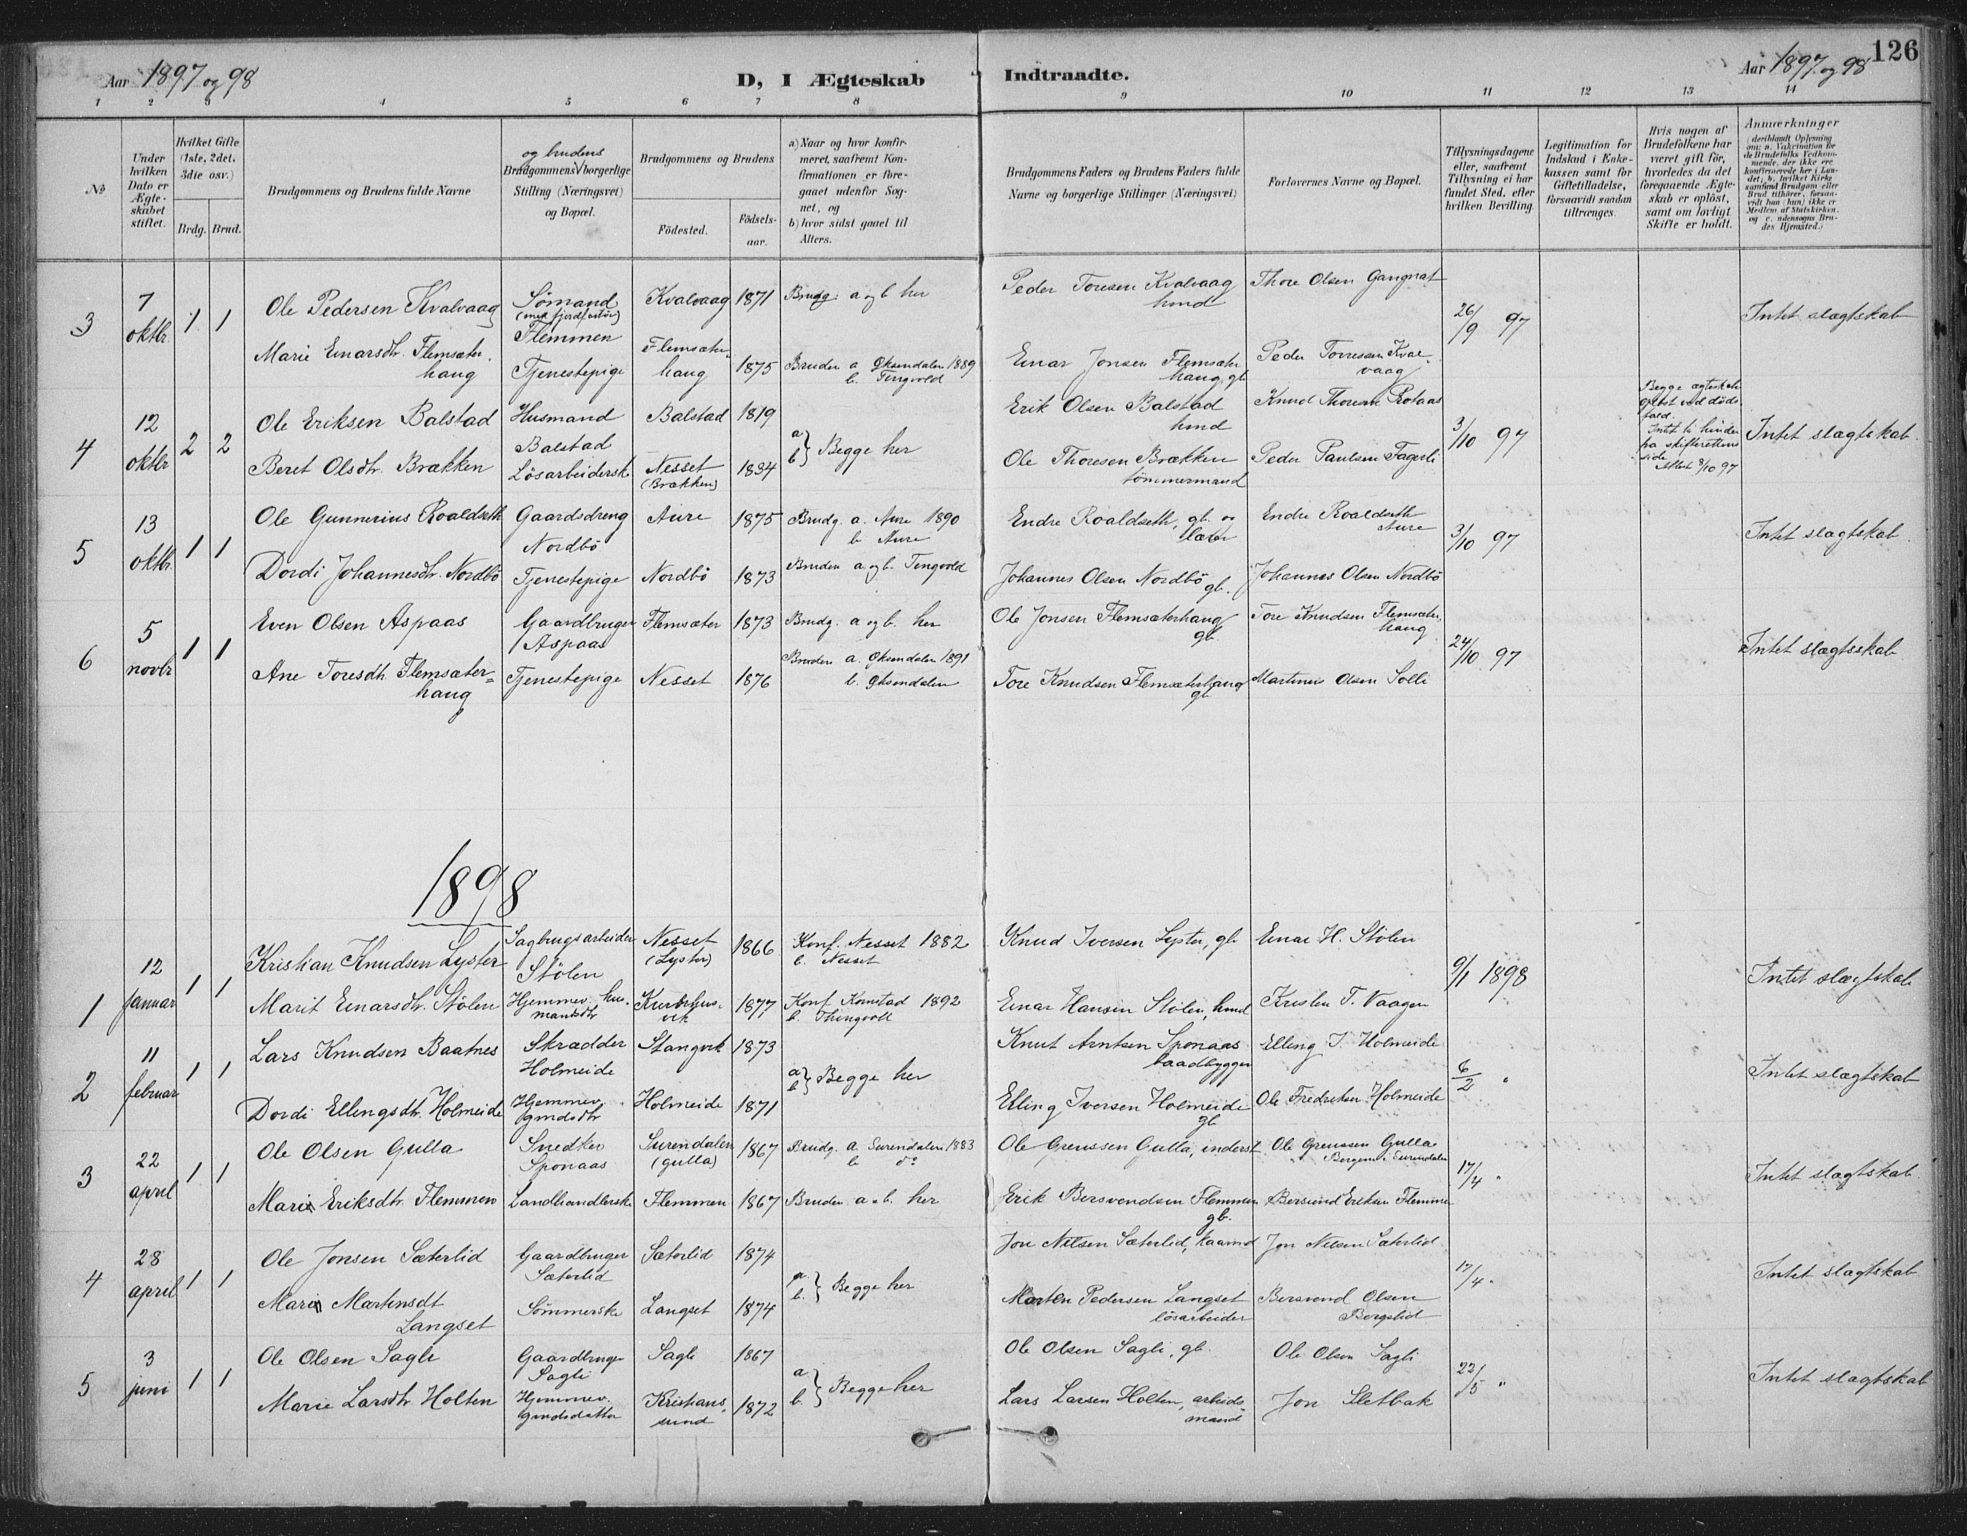 Aar 1897 og 98
D, I Ægteskab Indtraadte.
Aar 1897 og 98
126
1 2 3 4 5 6 7 8 9 10 11 12 13 14
No
Under hvilken Dato er Ægteskabet stiftet.
Hvilket Gifte (1ste, 2det, 3die osv.)
Brdg. Brud.
Brudgommens og Brudens fulde Navne
og brudens
Brudgommens borgerlige Stilling (Næringsvei) og Bopæl.
Brudgommens og Brudens
Födested.
Födselsaar.
a) Naar og hvor konfirmeret, saafremt Konfirmationen er foregaaet udenfor Sognet, og
b) hvor sidst gaaet til Alters.
Brudgommens Faders og Brudens Faders fulde Navne og borgerlige Stillinger (Næringsvei)
Forlovernes Navne og Bopæl.
Tillysningsdagene eller, saafremt Tillysning ei har fundet Sted, efter hvilken Bevilling.
Legitimation for Indskud i Enkekassen samt for Giftetilladelse, forsaavidt saadan tiltrænges.
Hvis nogen af Brudefolkene har været gift før, hvorledes da det foregaaende Ægteskab er opløst, samt om lovligt Skifte er holdt.
Anmærkninger
3
7 oktbr.
1 1
Ole Pedersen Kvalvaag
Sømand
Flemmen
Kvalvaag 1871
Brudg. a og b her
Peder Toresen Kvalvaag
hmd
Thore Olsen Gangnat
26/9 97
Intet slægtskab
Marie Einarsdtr. Flemsæterhaug
Tjenestepige
Flemsæterhaug 1875
Bruden a Øksendalen 1889
b. Tingvold
Einar Jonsen Flemsæterhaug, gb
Peder Torresen Kvalvaag
4
12 oktbr
2 2
Ole Eriksen Balstad
Husmand
Balstad
Balstad 1819
a b } Begge her
Erik Olsen Balstad
hmd
Knud Thoresen
3/10 97
Begge ægteskab opløst ved dødsfald.
Intet slægtskab.
Beret Olsdtr. Brækken
Løsarbeiderske
Nesset (Brækken) 1834
Ole Thoresen Brækken
tømmermand
Peder Paulsen Fagerli
5
13 oktbr.
1 1
Ole Gunnerius Roaldseth
Gaardsdreng
Nordbö
Aure 1875
Brudg. a. Aure 1890
b. Aure
Endre Roaldseth, gb.
Endre Roaldseth
Aure
3/10 97
Intet slægtskab.
Dordi Johannesdtr. Nordbö
Tjenestepige
Nordbö 1873
Bruden a og b. Tingvold
Johannes Olsen Nordbö gb.
Johannes Olsen Nordbö
6
5 novbr
1 1
Even Olsen Aspaas
Gaardbruger
Aspaas
Flemsæter 1873
Brudg. a og b. her
Ole Jonsen Flemsæterhaug
gb.
Tore Knudsen Flemsæterhaug
24/10 97
Intet slægtsskab
Ane Toresdtr Flemsæterhaug
Tjenestepige
Nesset 1876
Bruden a. Øksendalen 1891
b. Øksendalen
Tore Knudsen Flemsæterhaug
gb.
Martinus Olsen Solli
1898
1
12 Januar
1 1
Kristian Knudsen Lyster
Sagbrugsarbeider
Stölen
Nesset (Lyster) 1866
Konf. Nesset 1882
b. Nesset
Knud Iversen Lyster, gb.
Einar H. Stölen
9/1 1898
Intet slægtskab
Marit Einarsdtr. Stölen
Hjemmev. husmandsdtr
1877
Konf. Kornstad 1892
b. Thingvoll
Einar Hansen Stölen, hmd
Kristen T. Vaagen
2
11 februar
1 1
Lars Knudsen Baatnes
Skrædder
Holmeide
Stangvik 1873
a b } Begge her
Knut Arntsen Sponaas
baadbygger
Elling I. Holmeide
6/2 "
Intet slægtskab
Dordi Ellingsdtr. Holmeide
Hjemmev. gmdsdtr
Holmeide 1871
Elling Iversen Holmeide
gb
Ole Fredriksen Holmeide
3
22 april
1 1
Ole Olsen Gulla
Snedker
Sponaas
Surendalen (Gulla) 1867
Brudg. a Surendalen 1883
b do
Ole Gulla, inderst
Ole Gulla
17/4 "
Intet slægtskab
Marie Eriksdtr. Flemmen
Landhandlerske
Flemmen 1867
Bruden a.b. her
Erik Bersvendsen Flemmen
gb.
Bersvend Eriksen Flemmen
4
28 april
1 1
Ole Jonsen Sæterlid
Gaardbruger
Sæterlid
Sæterlid 1874
a. b. } Begge her
Jon Nilsen Sæterlid, kaarmd
Jon Nilsen Sæterlid
17/4 "
Intet slægtskab
Marie Martinsdt
Langset
Sömmerske
Langset 1874
Morten Pedersen Langset
lösarbeider
Bersvend Olsen
Bergslid
5
3 juni
1 1
Ole Olsen Sagli
Gaardbruger
Sagli
Sagli 1867
a b. } Begge her
Ole Olsen Sagli, gb.
Ole Olsen Sagli
22/5 "
Intet slægtskab
Marie Larsdtr Holten
Hjemmev. gmdsdatter
Kristianssund 1872
Lars Larsen Holten, arbeidsmand
Jon Sletbak